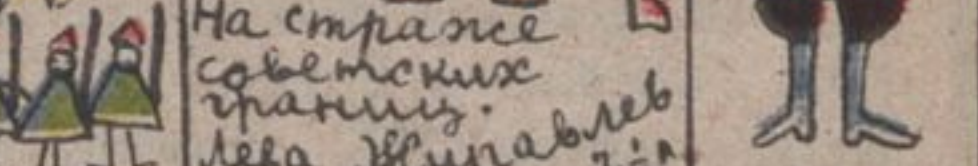 На страже
советских
границ.
Лева Журавлев